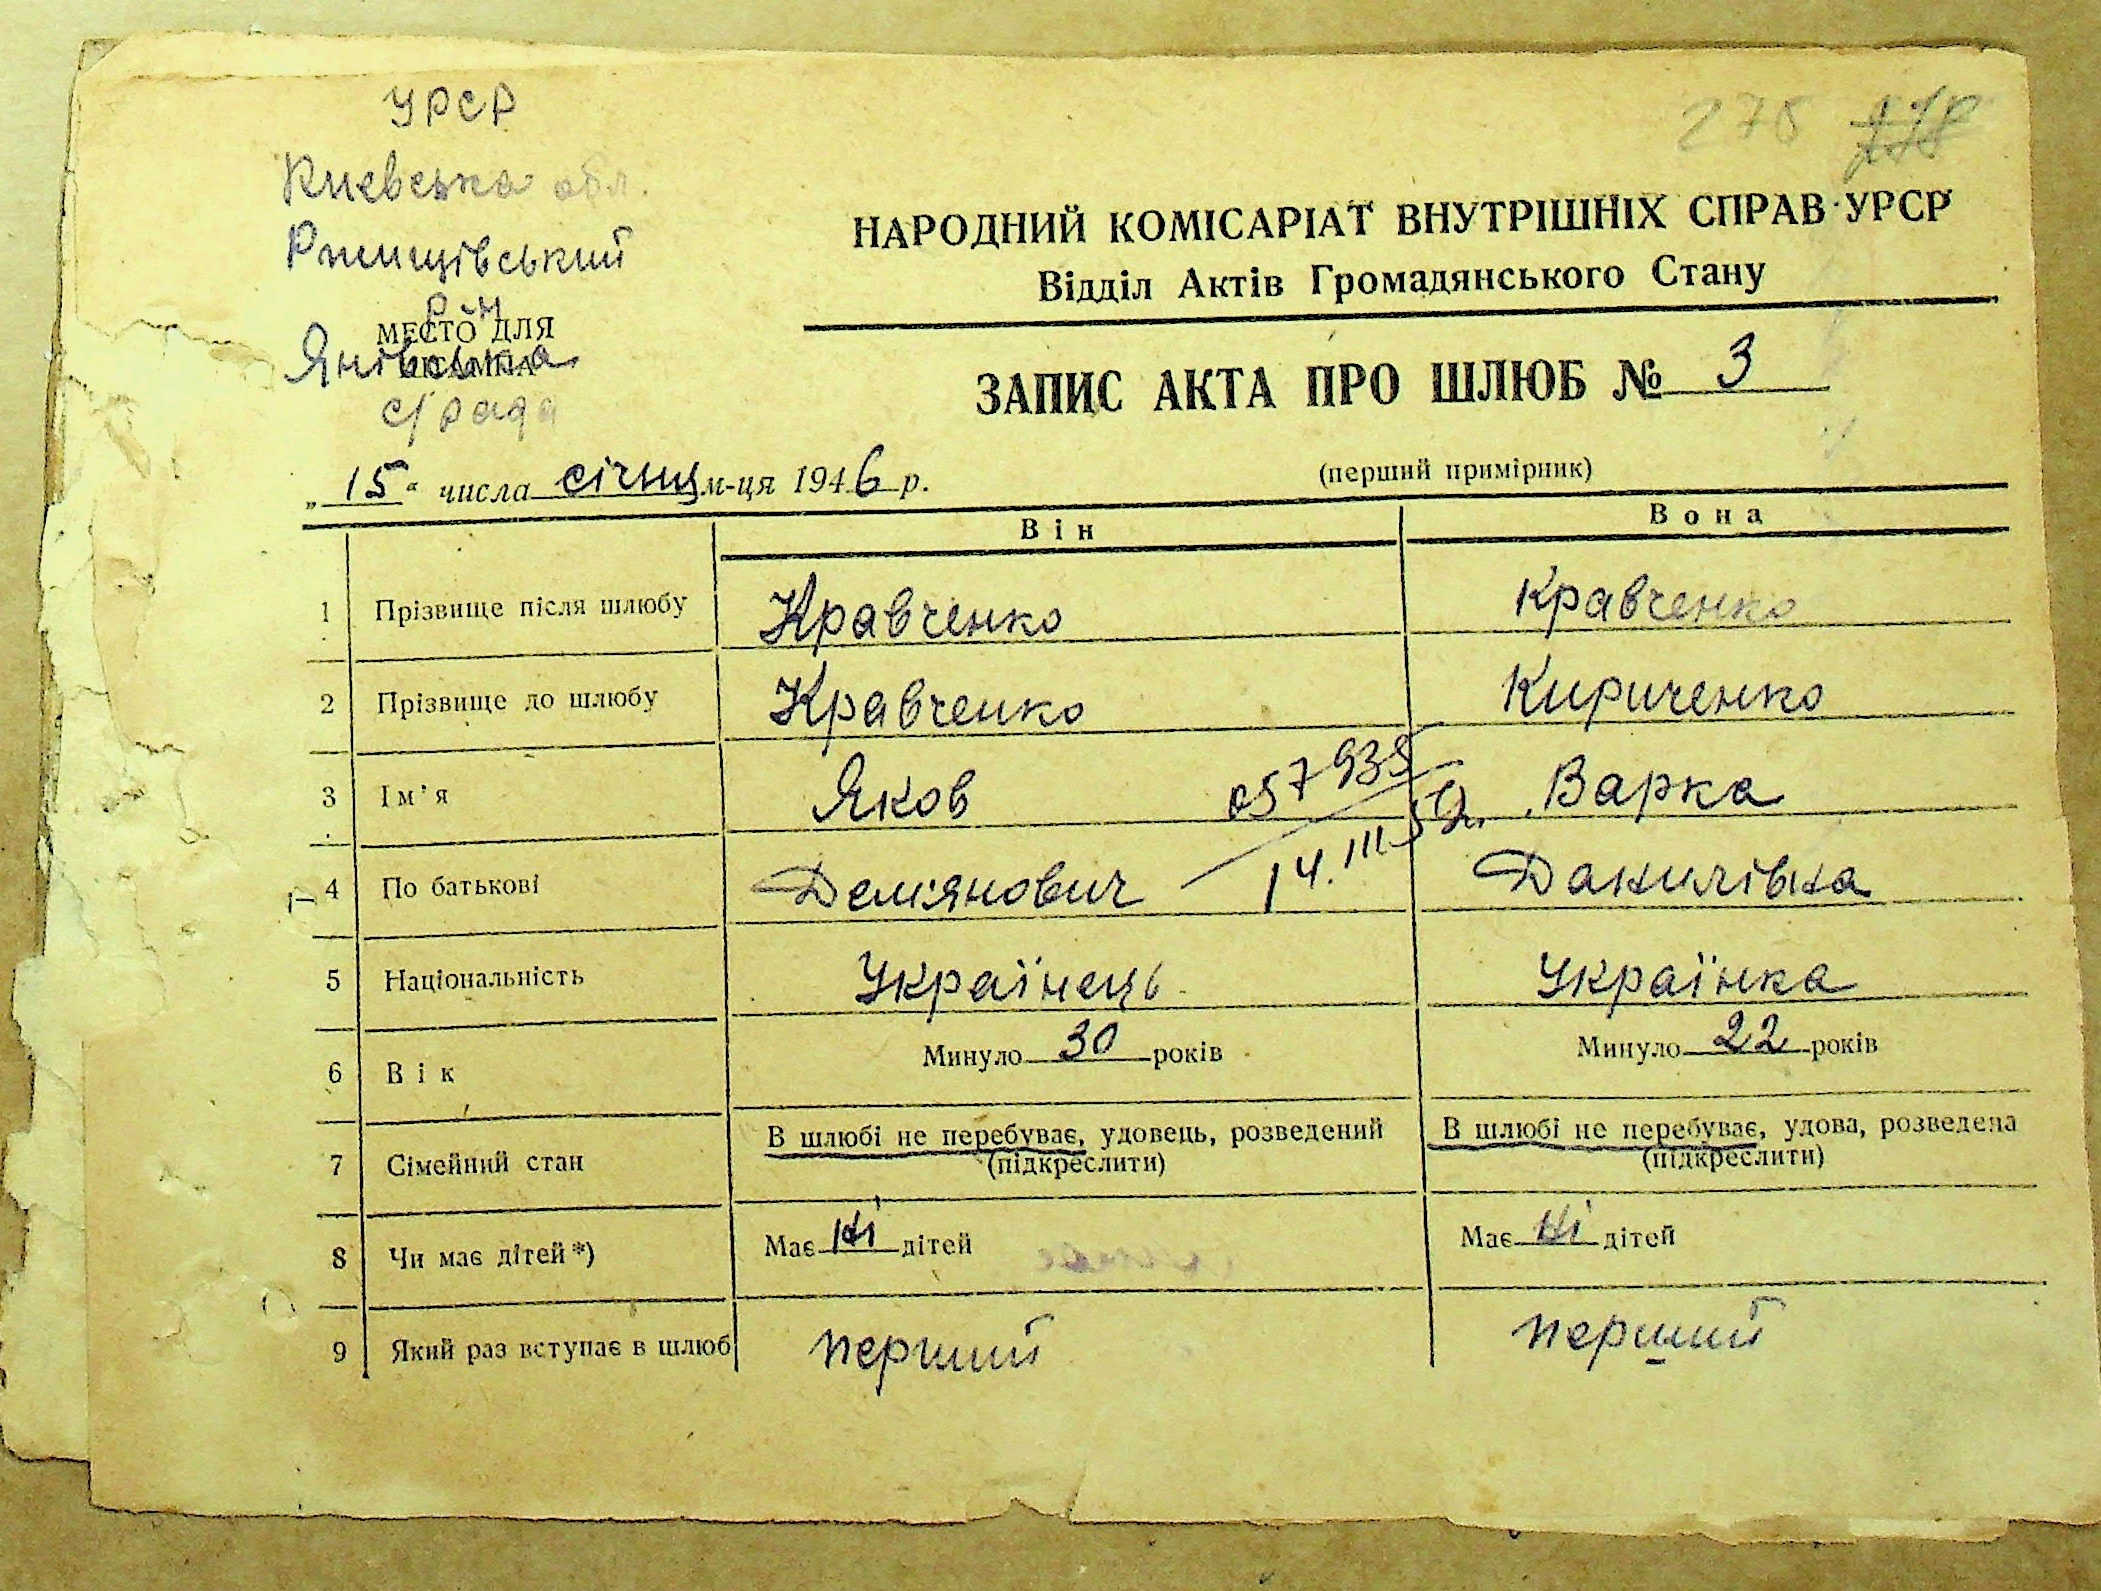 УРСР
278
Киевська обл.
Ржищівський
р-н
МЕСТО ДЛЯ
Янівська
с/рада
НАРОДНИЙ КОМІСАРІАТ ВНУТРІШНІХ СПРАВ УРСР
Відділ Актів Громадянського Стану
ЗАПИС АКТА ПРО ШЛЮБ № 3
(перший примірник)
„15“ числа січня м-ця 1946 р.
Він Вона
1 Прізвище після шлюбу Кравченко Кравченко
2 Прізвище до шлюбу Кравченко Кириченко
3 Ім'я Яков Варка
4 По батькові Дем'янович 14.III Данилівна
5 Національність Українець Українка
6 Вік Минуло 30 років Минуло 22 років
7 Сімейний стан В шлюбі не перебуває, удовець, розведений В шлюбі не перебуває, удова, розведена
(підкреслити) (підкреслити)
8 Чи має дітей*) Має ні дітей Має ні дітей
9 Який раз вступає в шлюб перший перший